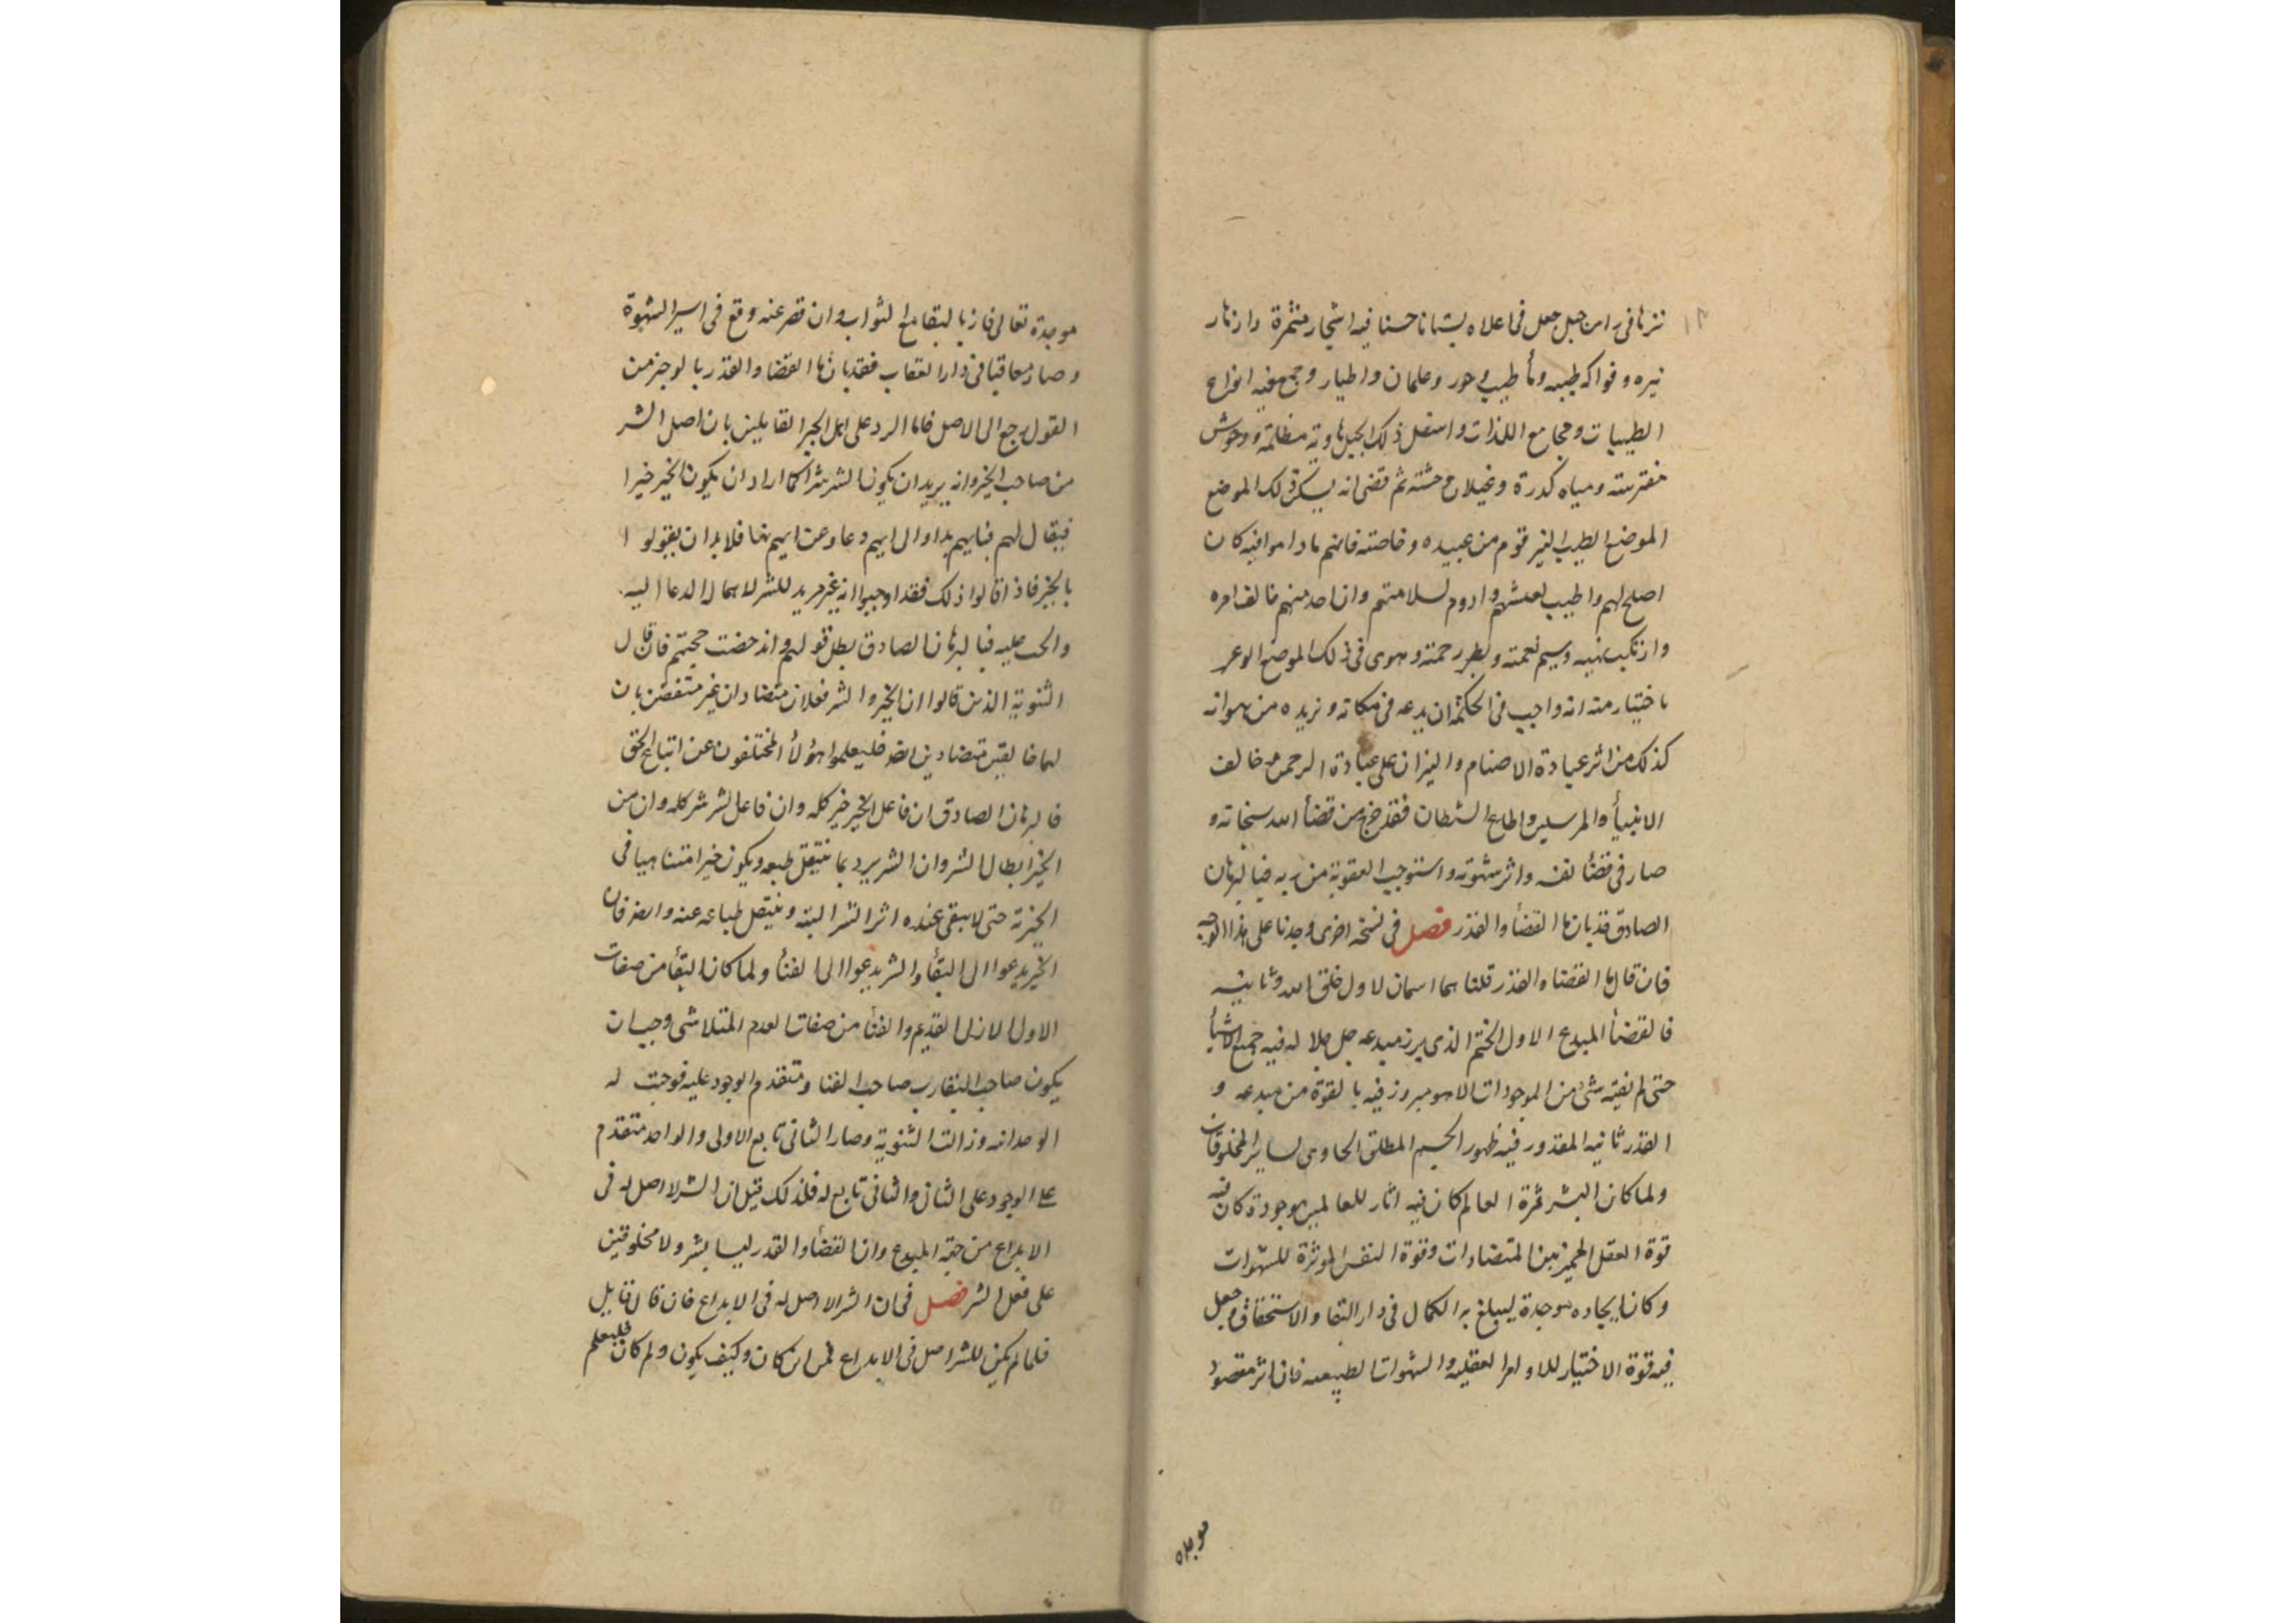 نزها فى راس جبل جعل فى اعلاه بستانا حسنا فيه اشجار مثمرة وازهار
نيره وفواكه طيبه وحور وغلمان واطيار وجمع فيه انواع
الطيبات ومجامع اللذات واسفل ذلك الجبل هاوية مظلمة ووحوش
مفترسته ومياه كدرة وغيلان وحشته ثم قضى انه يسكن ذلك الموضع
الموضع الطيب النير قوم من عبيده وخاصته فانهم ما داموا فيه كان
اصلح لهم واطيب لعيشهم وادوم لسلامتهم وان احد منهم خالف امره
وارتكب نهيه نعمته وبطر رحمته وهوى فى ذلك الموضع الوعر
باختيار منه انه واجب فى الحكمة ان يدعه فى مكانه ويزيده من هوانه
كذلك من اثر عبادة الاصنام والنيران على عبادة الرحمن وخالف
الانبيأ والمرسلين واطاع الشطان فقد خرج من قضأ الله سبحانه و
صار فى قضأ نفسه واثر شهوته واستوجب العقوبة من ربه فبا لبرهان
الصادق قد بان ما القضأ والقدر فصل فى نسخه اخرى وجدنا على هذا الوجه
فان قال ما القضاء والقدر قلنا هما اسمان لاول خلق الله وثانيه
فالقضأ المبدع الاول الختم الذى برز مبدعه جل جلاله فيه جميع الاشيأ
حتى لم يفته شىء من الموجودات الا هو مبروز فيه بالقوة من مبدعه و
القدر ثانيه المقدور فيه ظهور الجسم المطلق الحاوى لساير المخلوقات
ولما كان البشر ثمرة العالم كان فيه اثار للعالمين موجودة كان فيه
قوة العقل المميز بين المتضادات وقوة النفس الموثرة للشهوات
وكان ايجاده موجدة ليبلغ به الكمال فى دار البقا والاستحقاق وجعل
فيه قوة الاختيار للاوامر العقليه والشهوات الطبيعيه فان اثر مقصود
موجده
موجدة تعالى فاز بالبقا مع الثواب وان قصر عنه وقع فى اسير الشهوة
وصار معاقبا فى دار العقاب فقد بان ما القضا والقدر بالوجيز من
القول رجع الى الاصل فاما الرد على اهل الجبر القايلين بان اصل الشر
من صاحب الخير وانه يريد ان يكون الشر شرا كما اراد ان يكون الخير خيرا
فيقال لهم فبايهم بدا والى ايهم دعا وعن ايهم نها فلا بد ان يقولوا
بالخير فاذا قالوا ذلك فقد اوجبوا انه غير مريد للشر لاهماله الدعا اليه
والحث عليه فبالبرهان الصادق بطل قولهم واندحضت حجتهم فان قال
الثنوية الذين قالوا ان الخير والشر فعلان متضادان غير متفقين بان
لهما خالقين متضادين ايضه فليعلموا هؤلأ المختلفون عن اتباع الحق
فالبرهان الصادق ان فاعل الخير خير كله وان فاعل الشر شر كله وان من
الخير ابطال الشر وان الشرير بما ينتقل طبعه ويكون خيرا متناهيا فى
الخيرية حتى لا يبقى عنده اثر الشر البته وينتقل طباعه عنه وايضه فان
الخير يدعوا الى البقأ والشر يدعوا الى الفنأ ولما كان البقأ من صفات
الاول الازلى القديم والفنأ من صفات العدم المتلاشى وجب ان
يكون صاحب البقا رب صاحب الفنا ومتقدم الوجود عليه فوجبت له
الوحدانيه وزالت الثنوية وصار الثانى تابع الاولى والواحد متقدم
على الوجود على الثان والثانى تابع له فلذلك قيل ان الشر لا اصل له فى
الابداع من جهة المبدع وان القضأ والقدر ليسا بشر ولا مخلوقين
على فعل الشر فصل فى ان الشر لا اصل له فى الابداع فان قال قايل
فلما لم يكن للشر اصل فى الابداع فمن اين كان وكيف يكون ولم كان فليعلم